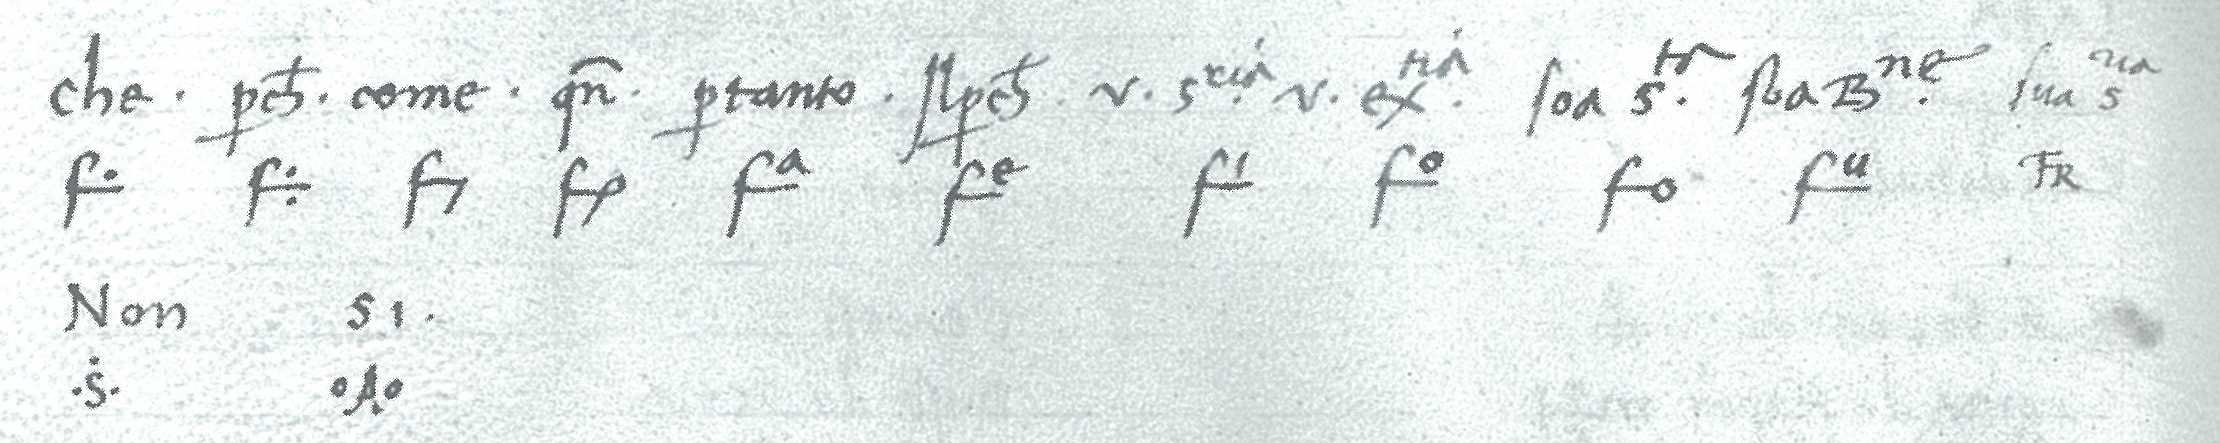 che · pch · come · qn · ptanto · slpch · v. s.ria v. ex.tia soa s.tà sua B.ne sua s na
f· f: f7 fp fa fe fi fo fo fu FR
Non si.
·ṡ· oAo